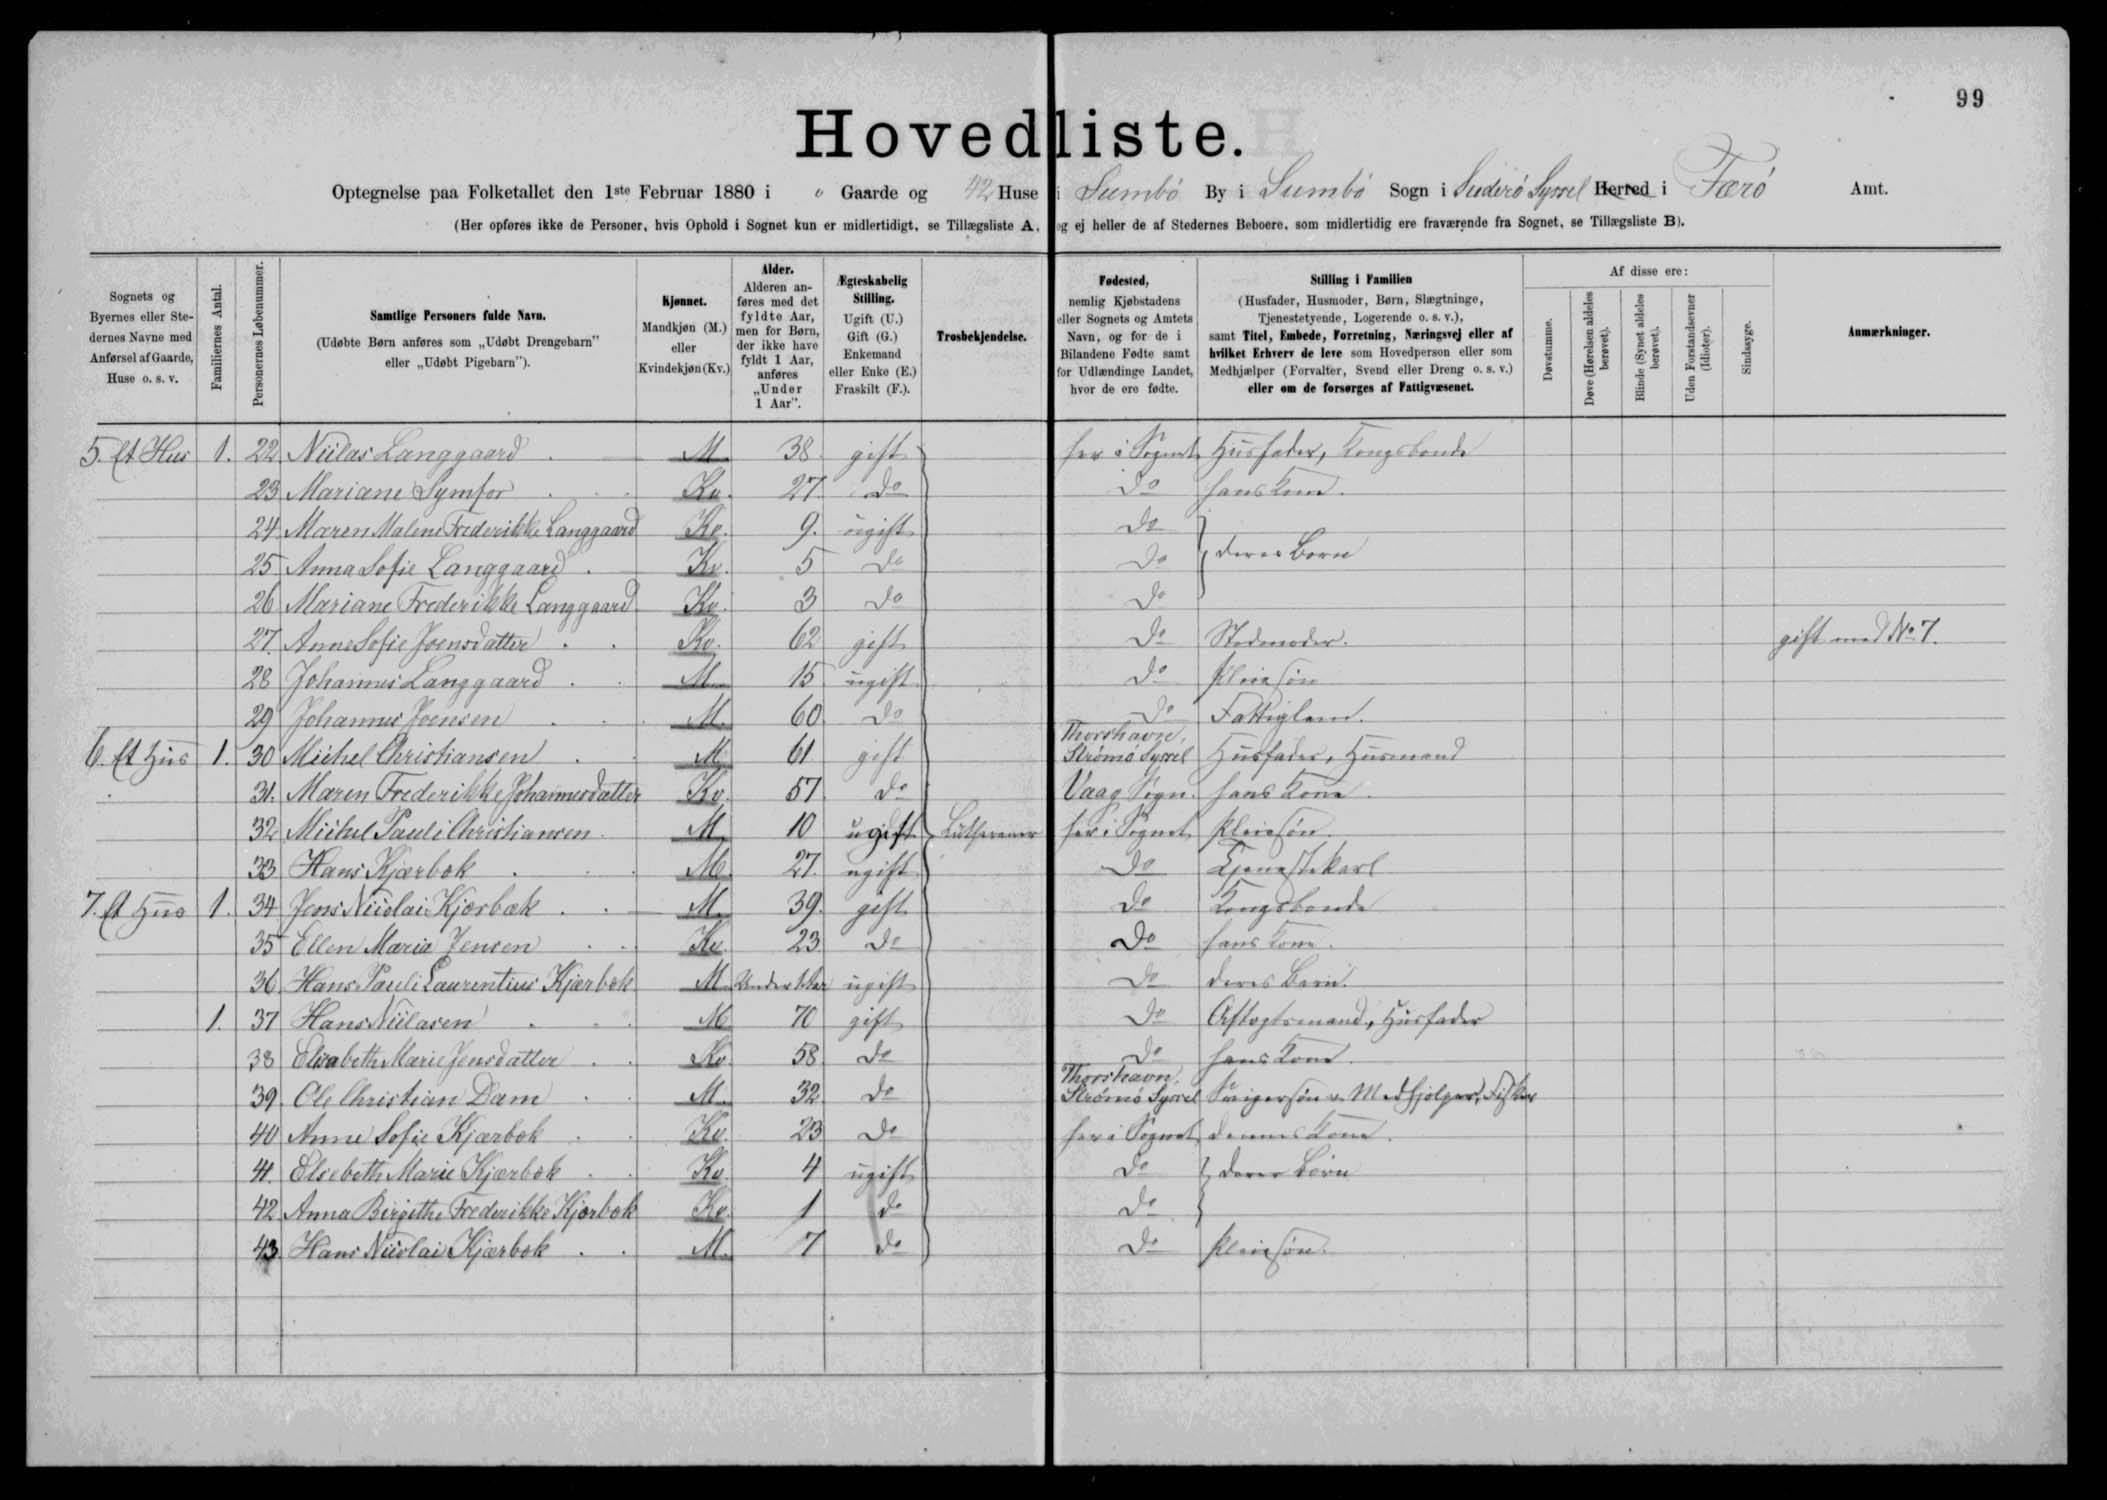 99
Hovedliste.
Optegnelse paa Folketallet den 1ste Februar 1880 i " Gaarde og 42 Huse i Sumbö By i Sumbö Sogn i Suderö Syssel Herred i Færö Amt.
(Her opføres ikke de Personer, hvis Ophold i Sognet kun er midlertidigt, se Tillægsliste A, og ej heller de af Stedernes Beboere, som midlertidig ere fraværende fra Sognet, se Tillægsliste B).
Sognets og Byernes eller Stedernes Navne med Anførsel af Gaarde, Huse o. s. v.
Familiernes Antal.
Personernes Løbenummer.
Samtlige Personers fulde Navn.
(Udøbte Børn anføres som „Udøbt Drengebarn" eller „Udøbt Pigebarn").
Kjønnet.
Mandkjøn (M.) eller Kvindekjøn (Kv.)
Alder.
Alderen anføres med det fyldte Aar, men for Børn, der ikke have fyldt 1 Aar, anføres „Under 1 Aar".
Ægteskabelig Stilling.
Ugift (U.) Gift (G.) Enkemand eller Enke (E.) Fraskilt (F.).
Trosbekjendelse.
Fødested,
nemlig Kjøbstadens eller Sognets og Amtets Navn, og for de i Bilandene Fødte samt for Udlændinge Landet, hvor de ere fødte.
Stilling i Familien
(Husfader, Husmoder, Børn, Slægtninge, Tjenestetyende, Logerende o. s. v.),
samt Titel, Embede, Forretning, Næringsvej eller af hvilket Erhverv de leve som Hovedperson eller som Medhjælper (Forvalter, Svend eller Dreng o. s. v.) eller om de forsørges af Fattigvæsenet.
Af disse ere:
Døvstumme.
Døve (Hørelsen aldeles berøvet).
Blinde (Synet aldeles berøvet).
Uden Forstandsevner (Idioter).
Sindssyge.
Anmærkninger.
5. Et Hus 1. 22 Niclas Langgaard M 38 gift her i Sognet Husfader, Kongsbonde
23 Mariane Symfor Kv. 27 do do hans Kone.
24 Maren Malene Frederikke Langgaard Kv. 9. ugift do
25 Anna Sofie Langgaard Kv. 5 do do deres Børn
26 Mariane Frederikke Langgaard Kv. 3 do do
27. Anne Sofie Joensdatter Kv. 62 gift do Stedmoder. gift med No 7.
28 Johannes Langgaard M 15 ugift do Pleiesön
29 Johannes Joensen M. 60 do do Fattiglem.
6. Et Hus 1. 30 Michel Christiansen M 61 gift Thorshavn, Strömö Syssel Husfader, Husmand
31. Maren Frederikke Johannesdatter Kv. 57. do Vaag Sogn. hans Kone.
32 Michel Pauli Christiansen M 10 ugift Lutheraner her i Sognet Pleiesön.
33 Hans Kjærbæk M. 27. ugift do Tjenestekarl
7. Et Hus 1. 34 Jens Nicolai Kjærbæk M. 39. gift do Kongsbonde
35 Ellen Maria Jensen Kv. 23 do do hans Kone.
36 Hans Pauli Laurentius Kjærbæk M Under 1 Aar ugift do deres Barn.
1. 37 Hans Niclasen M 70 gift do Aftægtsmand, Husfader
38 Elisabeth Marie Jensdatter Kv. 58 do do hans Kone.
39. Ole Christian Dam M. 32 do Thorshavn, Strömö Syssel Svigersön v. Medhjælper, Fisker
40 Anne Sofie Kjærbæk Kv. 23 do her i Sognet dennes Kone.
41. Elsebeth Marie Kjærbæk Kv. 4 ugift do deres Börn
42 Anna Birgithe Frederikke Kjærbæk Kv. 1 do do
43 Hans Nicolai Kjærbæk M. 7 do do Pleiesön.